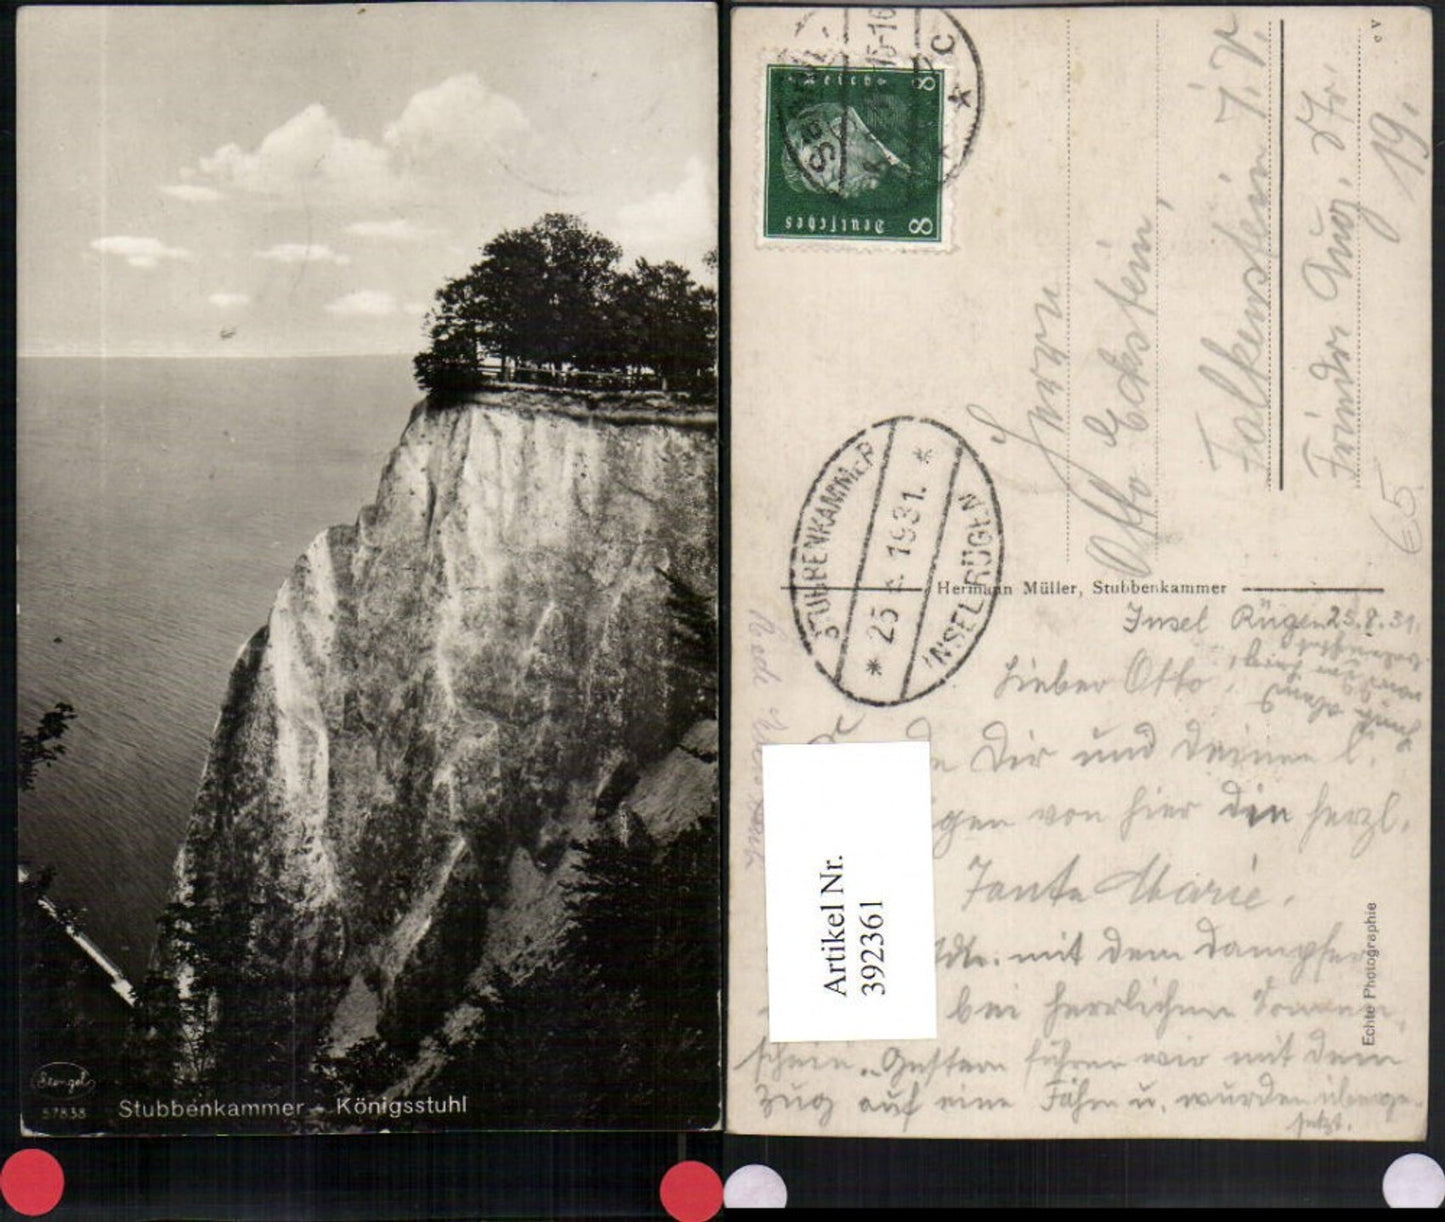 Stengel
57838
Stubbenkammer - Königsstuhl
Deutsches
Reich
8
8
C
15-16
Herrn
Otto Eckstein,
Falkenstein i. V.
Friedr. Aug. Str.
19.
65
STUBBENKAMMER
* 25 1931. *
INSEL RÜGEN
Hermann Müller, Stubbenkammer
Insel Rügen 25.8.31.
Lieber Otto,
Dir und Deinen l.
von hier die herzl.
Tante Marie.
mit dem Dampfer
bei herrlichem Sonnen-
schein. Gestern fuhren wir mit dem
Zug auf eine Fähre u. wurden überge-
setzt.
Echte Photographie
Artikel Nr.
392361